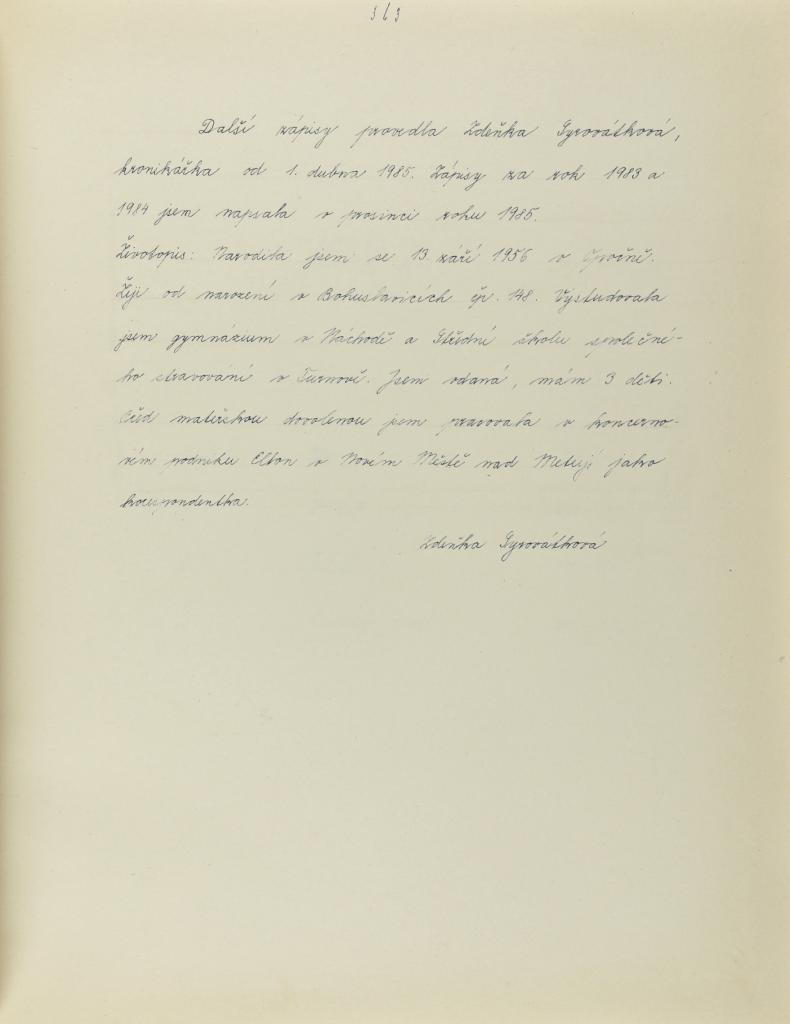 313
Další zápisy provedla Zdeňka Syrovátková,
kronikářka od 1. dubna 1985. Zápisy za rok 1983 a
1984 jsem napsala v prosinci roku 1985.
Životopis: Narodila jsem se 13. září 1956 v Opočně.
Žiji od narození v Bohuslavicích čp. 148. Vystudovala
jsem gymnázium v Náchodě a Střední školu společné-
ho stravování v Turnově. Jsem vdaná, mám 3 děti.
Před mateřskou dovolenou jsem pracovala v koncerno-
vém podniku Elton v Novém Městě nad Metují jako
korespondentka.
Zdeňka Syrovátková